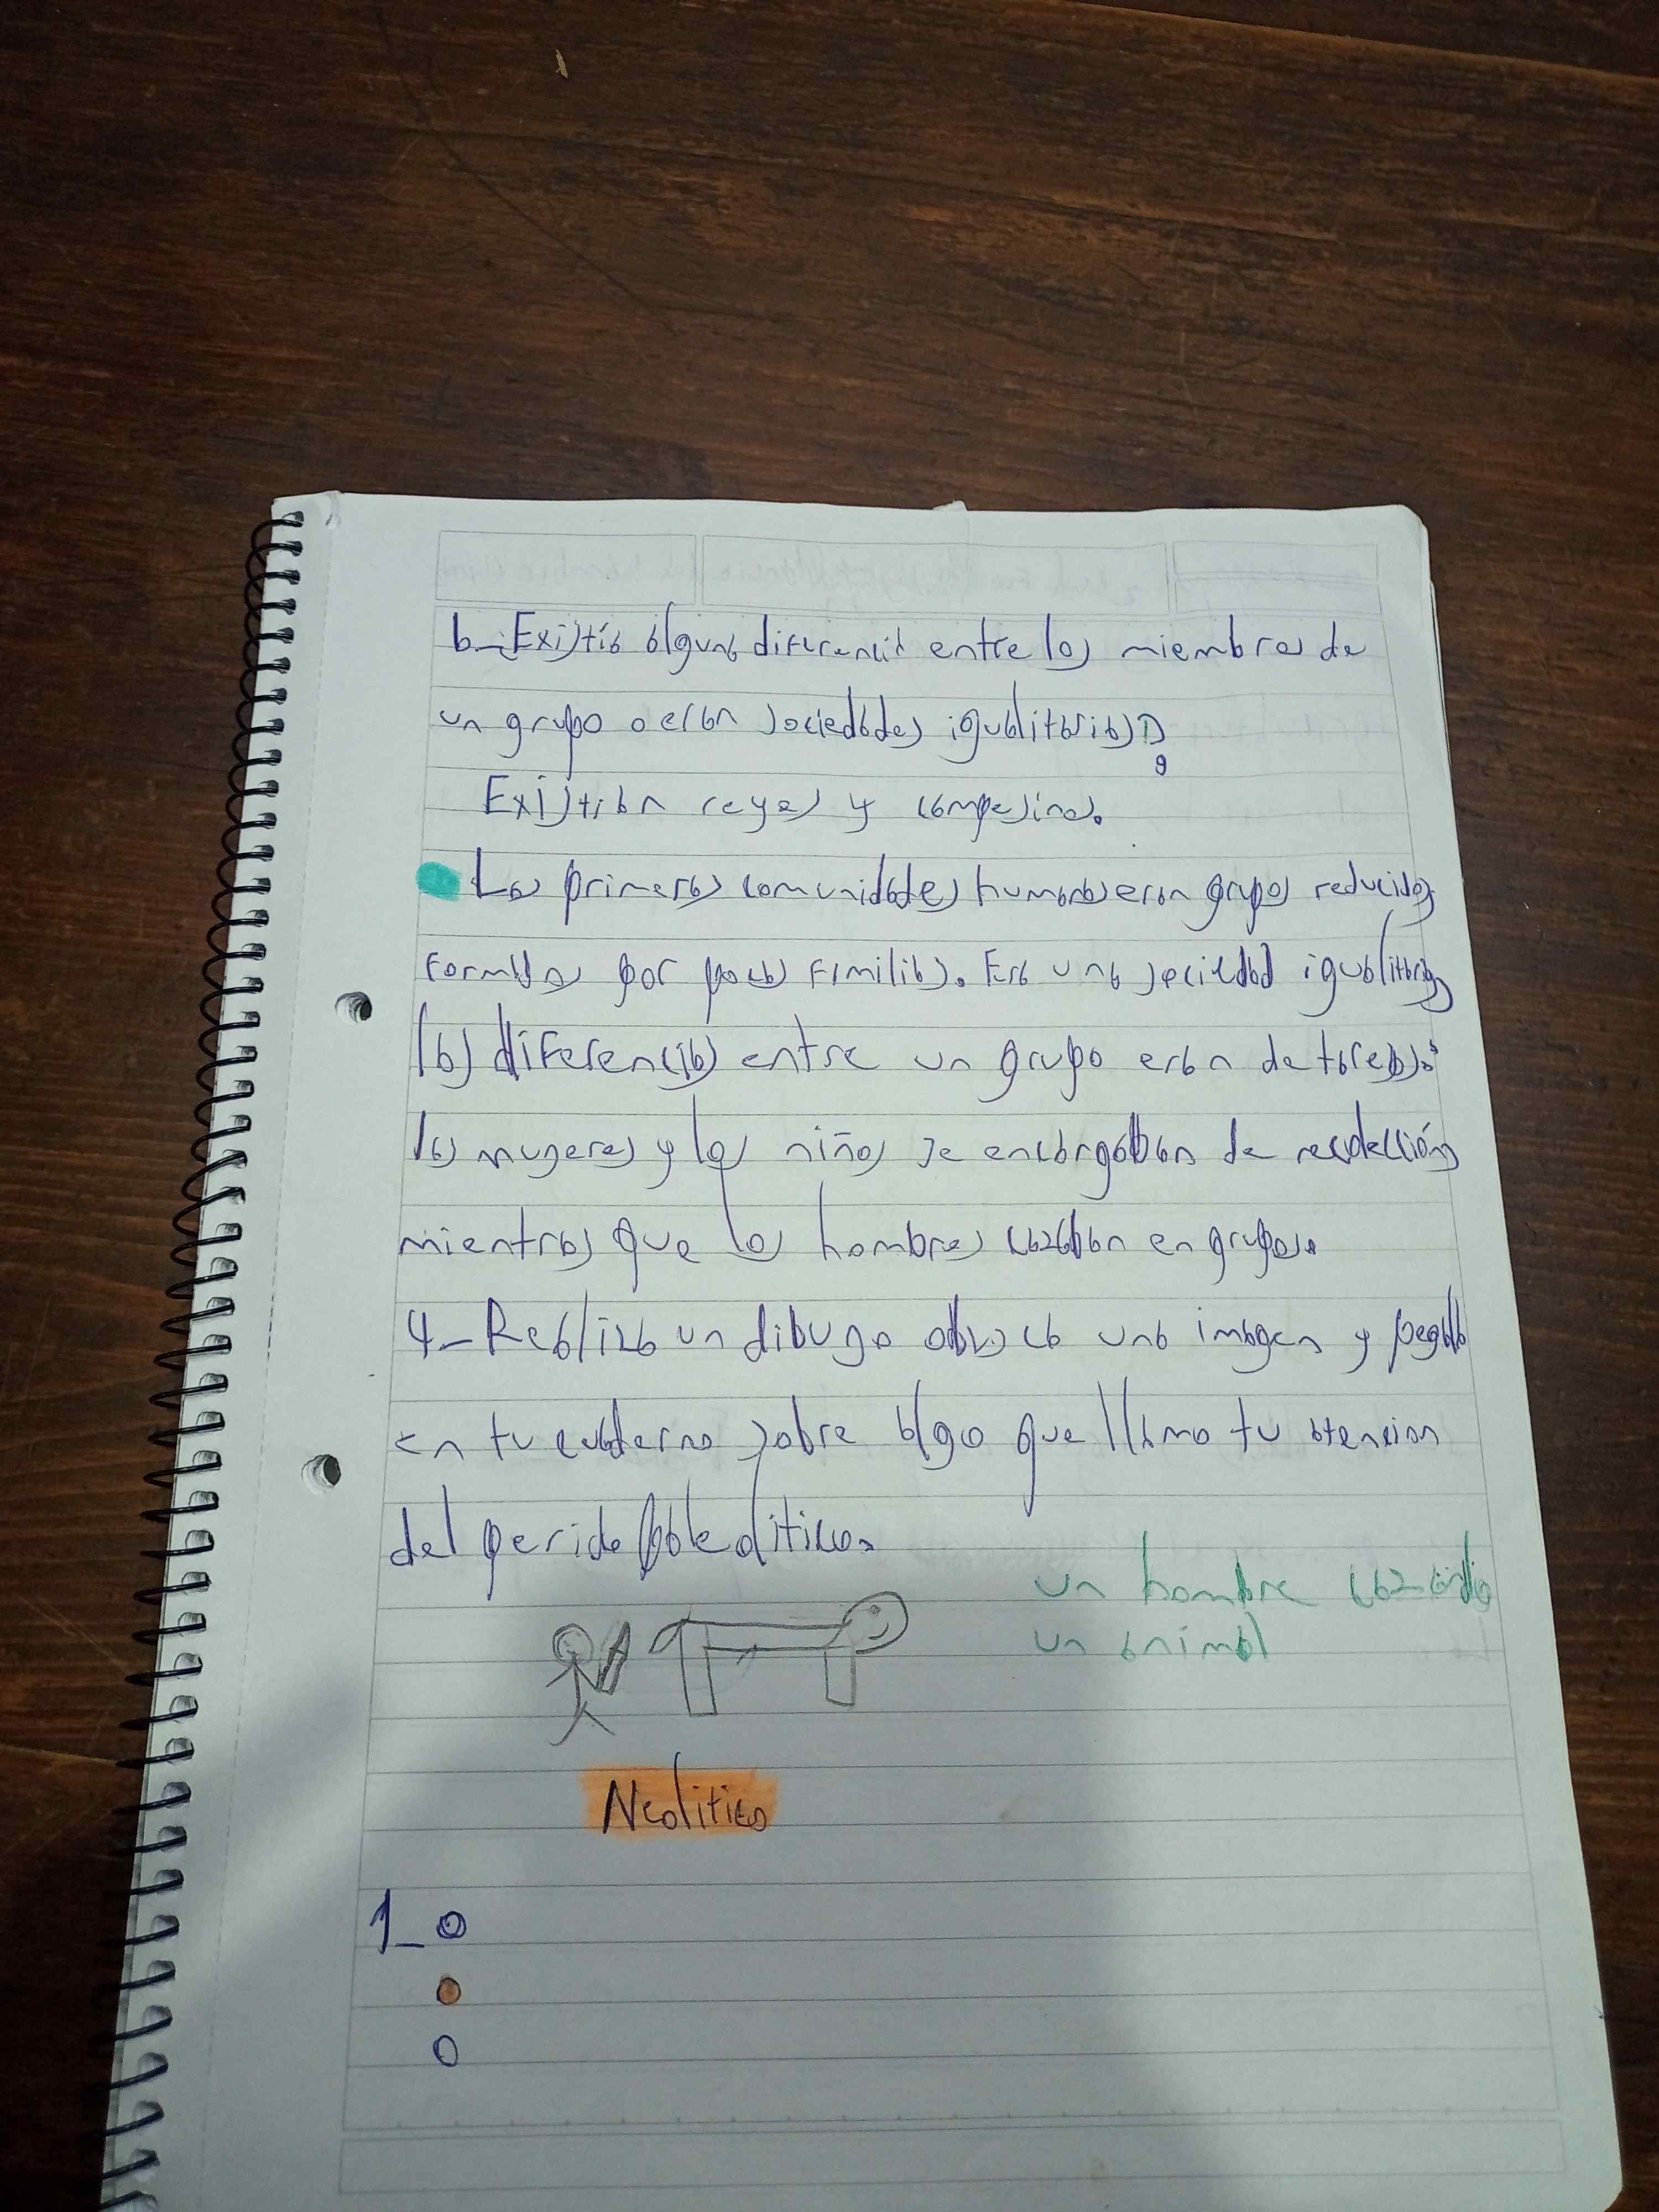 b-¿Existía alguna diferencia entre los miembros de
un grupo o eran sociedades igualitarias?
Existían reyes y campesinos.
Las primeras comunidades humanas eran grupos reducidos
formados por pocas familias. Era una sociedad igualitaria,
las diferencias entre un grupo eran de tareas:
las mugeres y los niños se encargaban de recolección,
mientras que los hombres cazaban en grupos.
4-Realiza un dibugo o busca una imagen y pegala
en tu cuaderno sobre algo que llamo tu atension
del perido Paleolitico.
un hombre cazando
un animal
Neolitico
1-